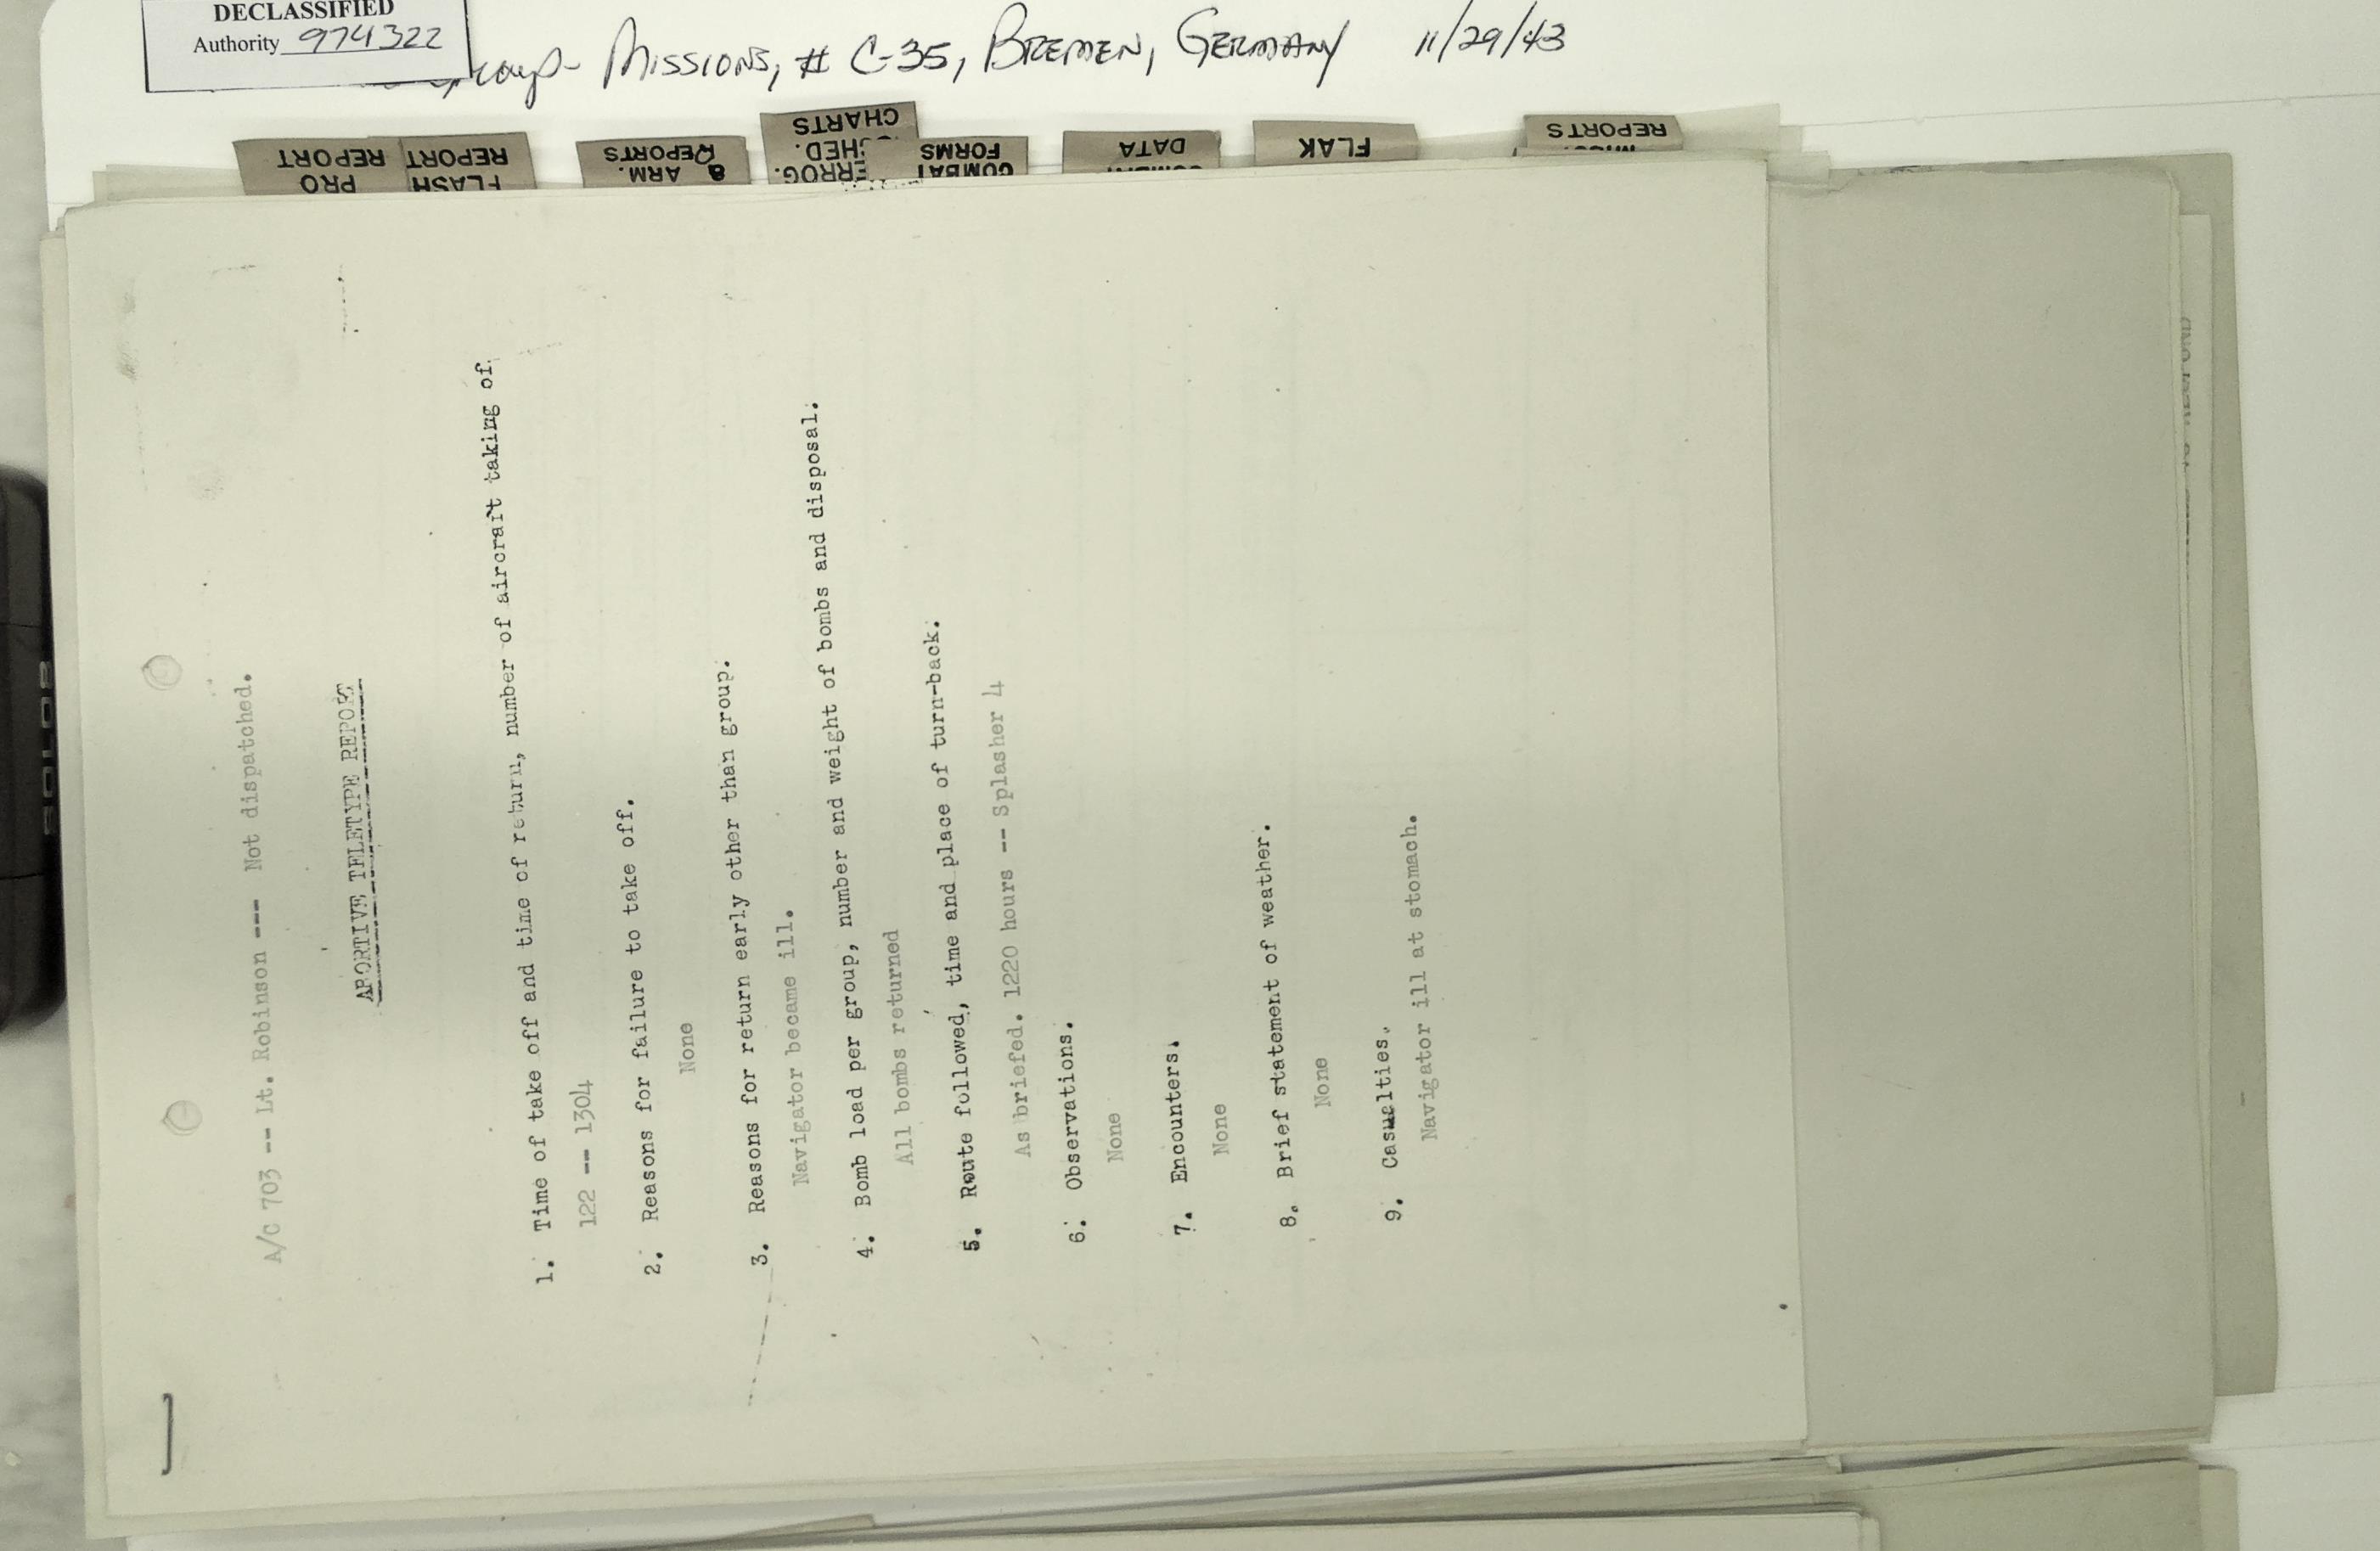 DECLASSIFIED
Authority 974322
Group- Missions, # C-35, Bremen, Germany 11/29/43
PRO
REPORT
FLASH
REPORT
ARM.
REPORTS
SHED.
CHARTS
COMBAT
FORMS
DATA
FLAK
REPORTS
A/C 703 -- Lt. Robinson --- Not dispatched.
ABORTIVE TELETYPE REPORT
1. Time of take off and time of return, number of aircraft taking of
122 -- 1304
2. Reasons for failure to take off.
None
3. Reasons for return early other than group.
Navigator became ill.
4. Bomb load per group, number and weight of bombs and disposal.
All bombs returned
5. Route followed, time and place of turn-back.
As briefed. 1220 hours -- Splasher 4
6. Observations.
None
7. Encounters.
None
8. Brief statement of weather.
None
9. Casualties.
Navigator ill at stomach.